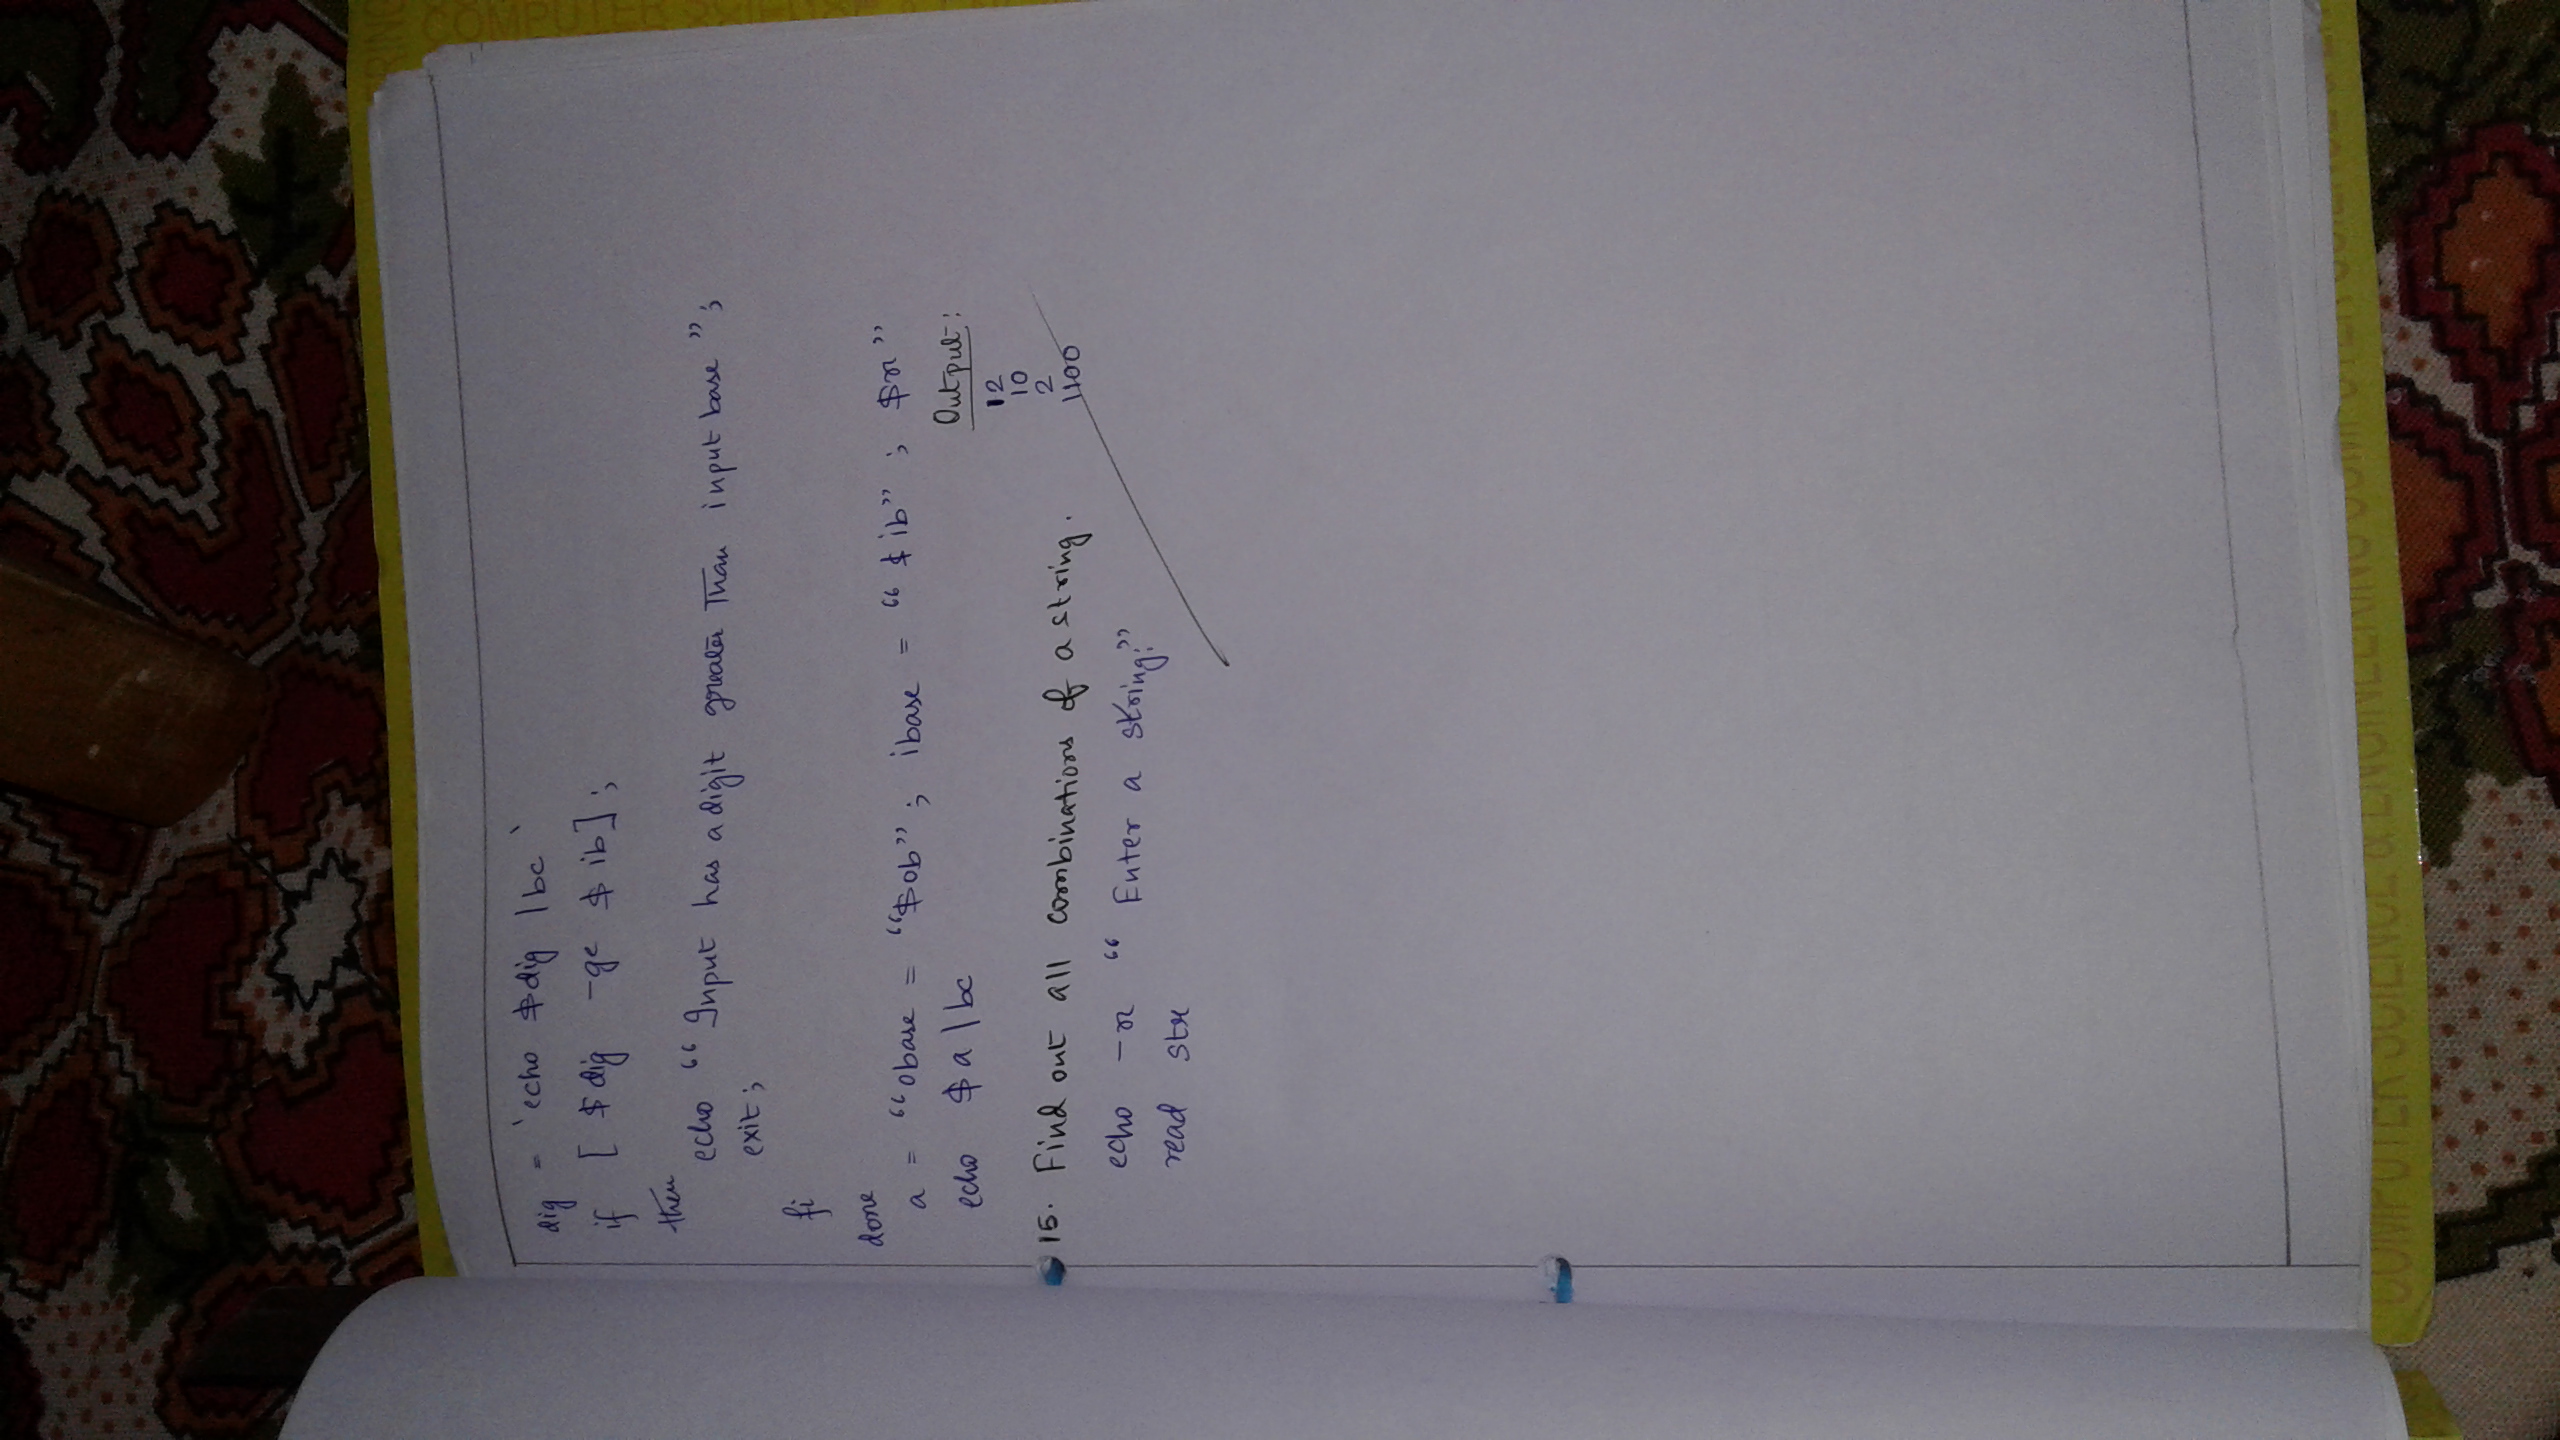 dig = `echo $dig | bc`
if [ $dig -ge $ib];
then
echo "Input has a digit greater than input base";
exit;
fi
done
a = "obase = "$ob"; ibase = "$ib"; $n"
echo $a | bc
Output:
12
10
2
1100
15. Find out all combinations of a string.
echo -n "Enter a string:"
read str
COMPUTER SCIENCE & ENGINEERING COMPUTER SCIENCE &